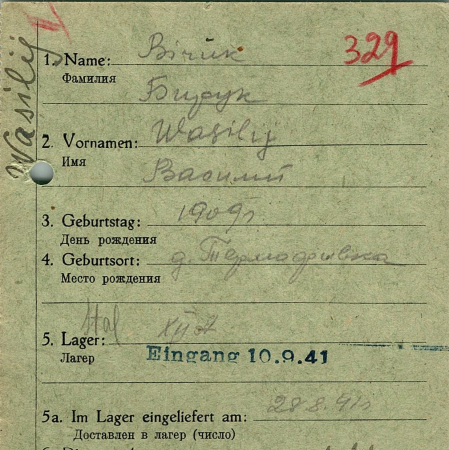 Wasilij
329
1. Name:
Фамилия
2. Vornamen: Wasilij
Имя
Василий
3. Geburtstag: 1909г
День рождения
4. Geburtsort: д.
Место рождения
Stal XIIA
5. Lager:
Лагер
Eingang 10.9.41
28 8. 41г
5a. Im Lager eingeliefert am:
Доставлен в лагер (число)